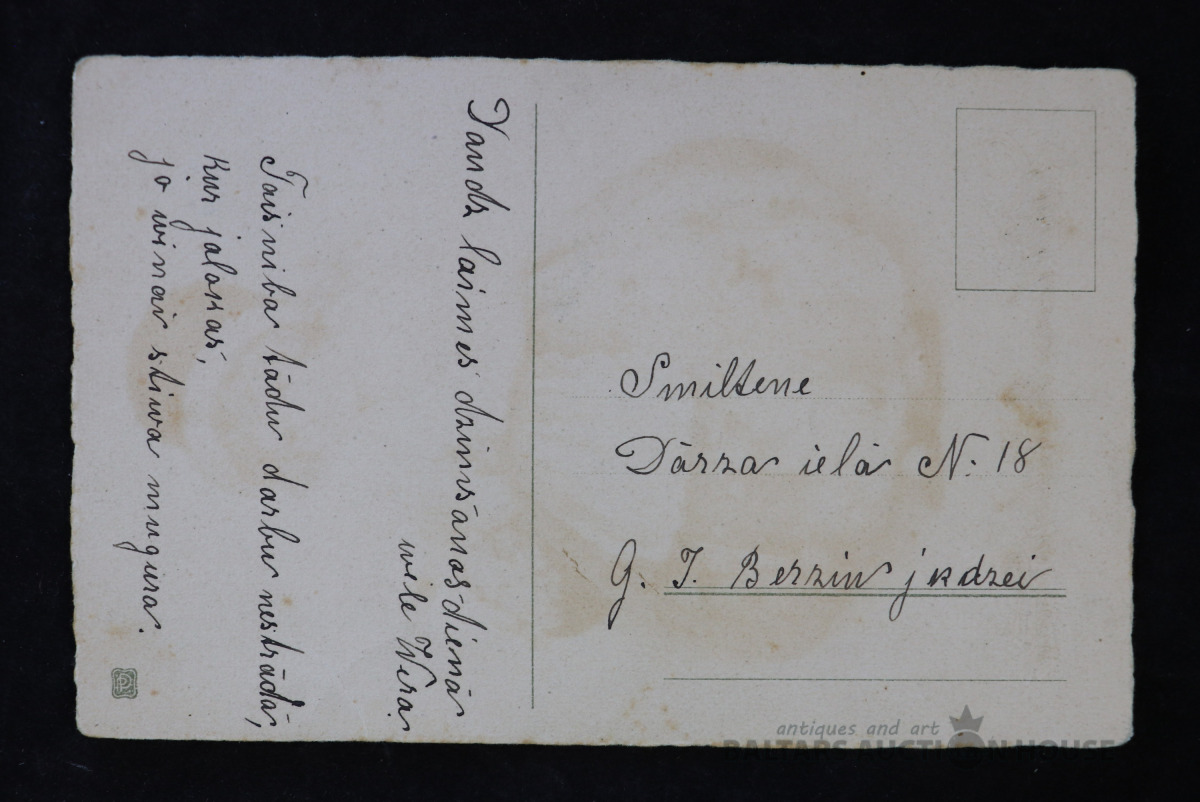 Daudz laimes dzimšanas dienā
wēle Wera.
Taisniba tādu darbu nestrādā,
kur jalokas,
jo winai stiwa mugura.
Smiltene
Dārza ielā N. 18
G. J. Berzin jkdzei
antiques and art
BALTARS AUCTION HOUSE